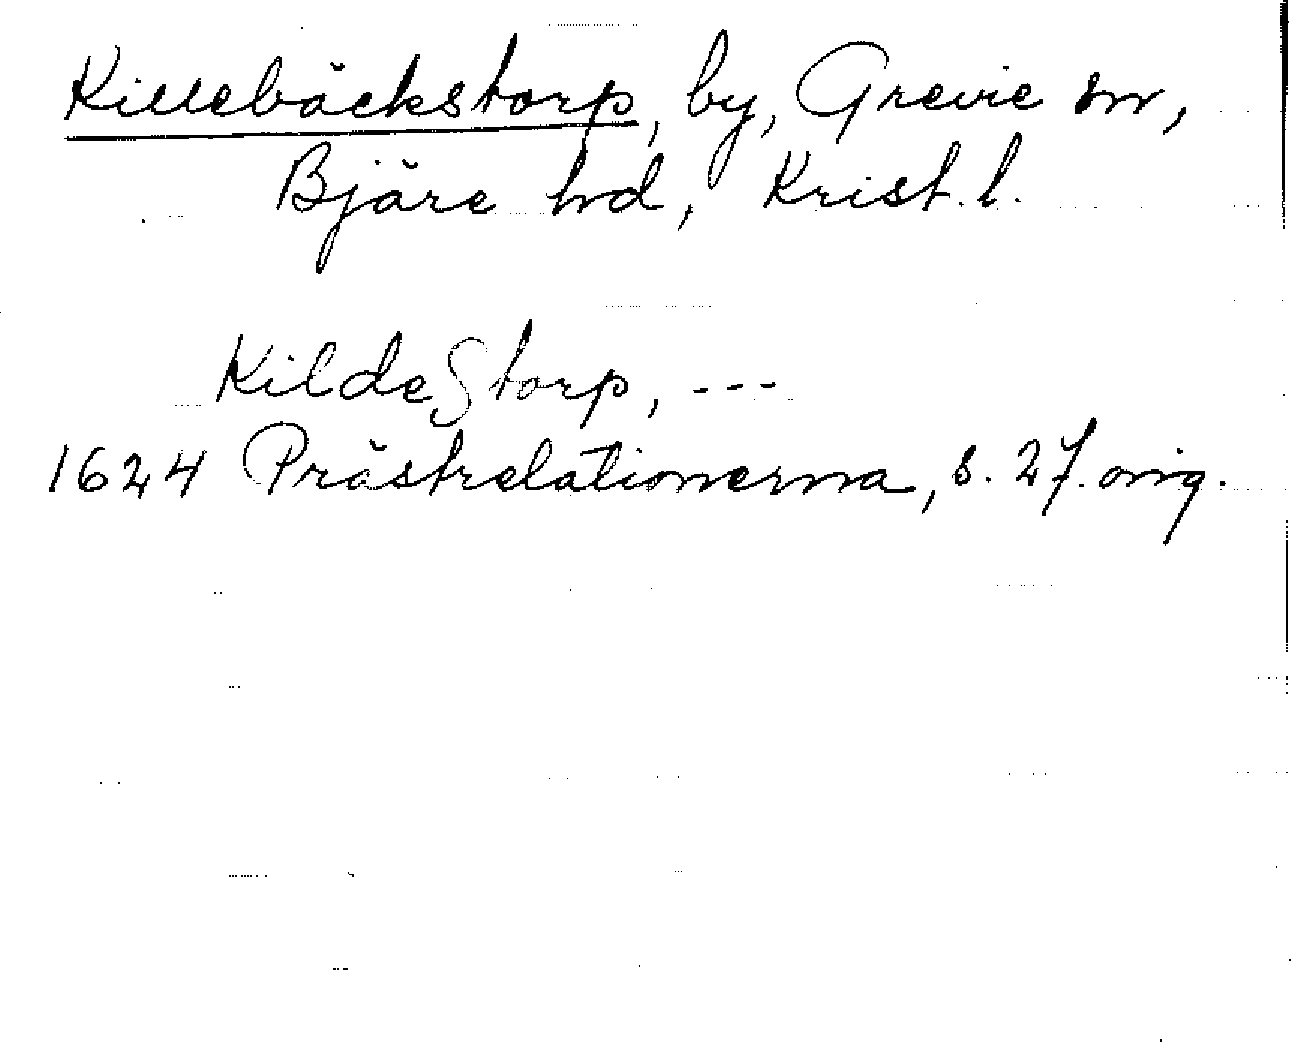 Killebäckstorp, by, Grevie sn,
Bjäre hd, Krist. l.
KildeStorp, ---
1624 Prästrelationerna, s. 27. orig.